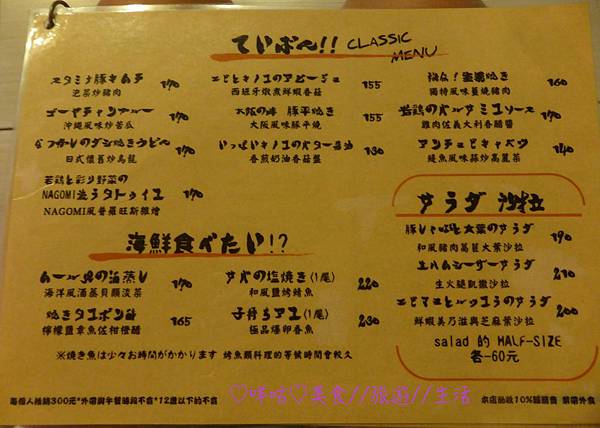 ていばん!! CLASSIC MENU
スタミナ豚キムチ 170
泡菜炒豬肉
ゴーヤチャンプルー 170
沖繩風味炒苦瓜
なつかしのダシ焼きうどん 170
日式懷舊炒烏龍
若鶏と彩り野菜の
NAGOMI流ラタトゥイユ 170
NAGOMI風普羅旺斯雜燴
エビとキノコのアヒージョ 155
西班牙燉煮鮮蝦香菇
大阪の味 豚平焼き 155
大阪風味豚平燒
いっぱいキノコのバター醤油 130
香煎奶油香菇盤
160
獨特風味薑燒豬肉
若鶏のバルサミコソース 170
雞肉佐義大利香醋醬
アンチョビキャベツ 140
鯷魚風味蒜炒高麗菜
海鮮食べたい!?
ムール貝の酒蒸し 170
海洋風酒蒸貝類淡菜
焼きタコポン酢 165
檸檬鹽章魚佐柑橙醋
サバの塩焼き(1尾) 220
和風鹽烤鯖魚
子持ちアユ(1尾) 230
極品爆卵香魚
※焼き魚は少々お時間がかかります 烤魚類料理的等候時間會較久
サラダ 沙拉
豚しゃぶと大葉のサラダ 190
和風豬肉萵苣大葉沙拉
生ハムシーザーサラダ 210
生火腿凱撒沙拉
エビマヨとルッコラのサラダ 200
鮮蝦美乃滋與芝麻葉沙拉
salad 的 HALF-SIZE
各-60元
每個人低銷300元*外帶與午餐時段不含*12歲以下的不含
本店酌收10%服務費 禁帶外食
♡咔咕♡美食//旅遊//生活